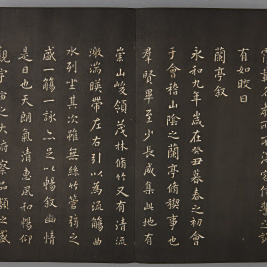 名教所不得容信誓之誠
有如皎日
蘭亭敘
永和九年歲在癸丑暮春之初會
于會稽山陰之蘭亭脩稧事也
羣賢畢至少長咸集此地有
崇山峻領茂林脩竹又有清流
激湍暎帶左右引以為流觴曲
水列坐其次雖無絲竹管弦之
盛一觴一詠亦足以暢敘幽情
是日也天朗氣清惠風和暢仰
觀宇宙之大俯察品類之盛